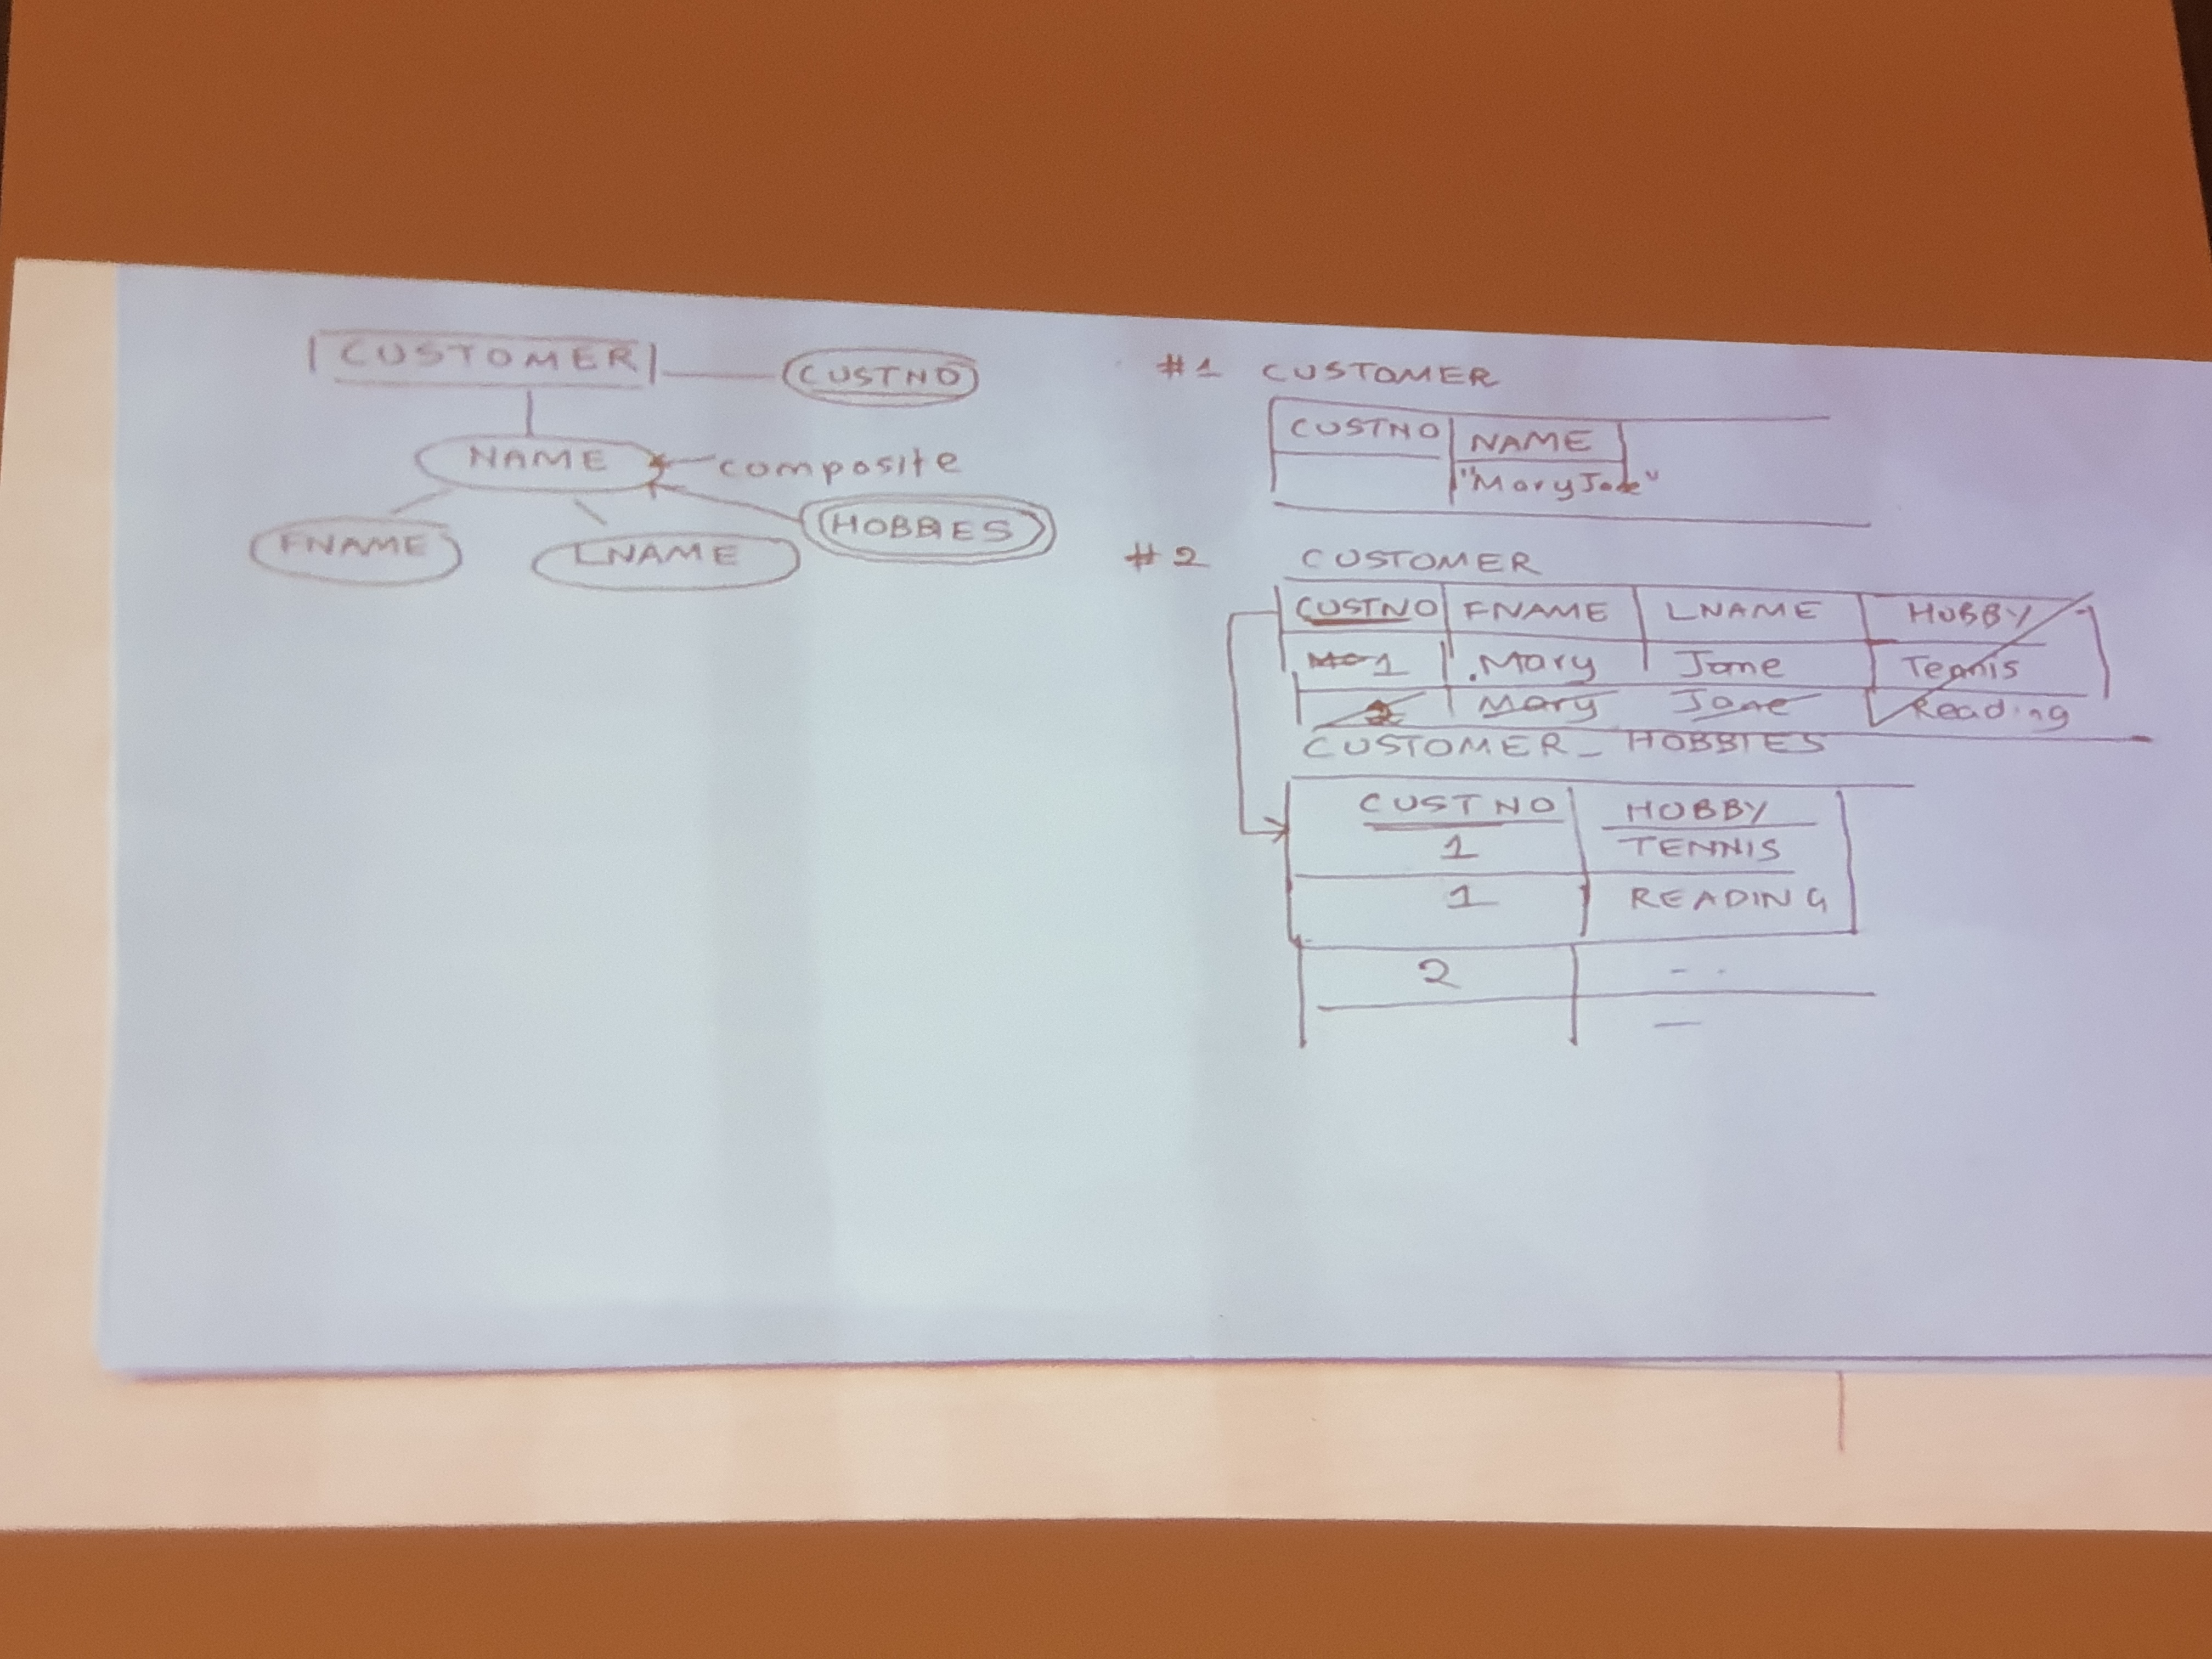 CUSTOMER CUSTNO
NAME composite
FNAME LNAME HOBBIES
#1 CUSTOMER
CUSTNO NAME
"Mary Jane"
#2 CUSTOMER
CUSTNO FNAME LNAME HOBBY
1 Mary Jane Tennis
2 Mary Jane Reading
CUSTOMER_HOBBIES
CUSTNO HOBBY
1 TENNIS
1 READING
2 - -
—